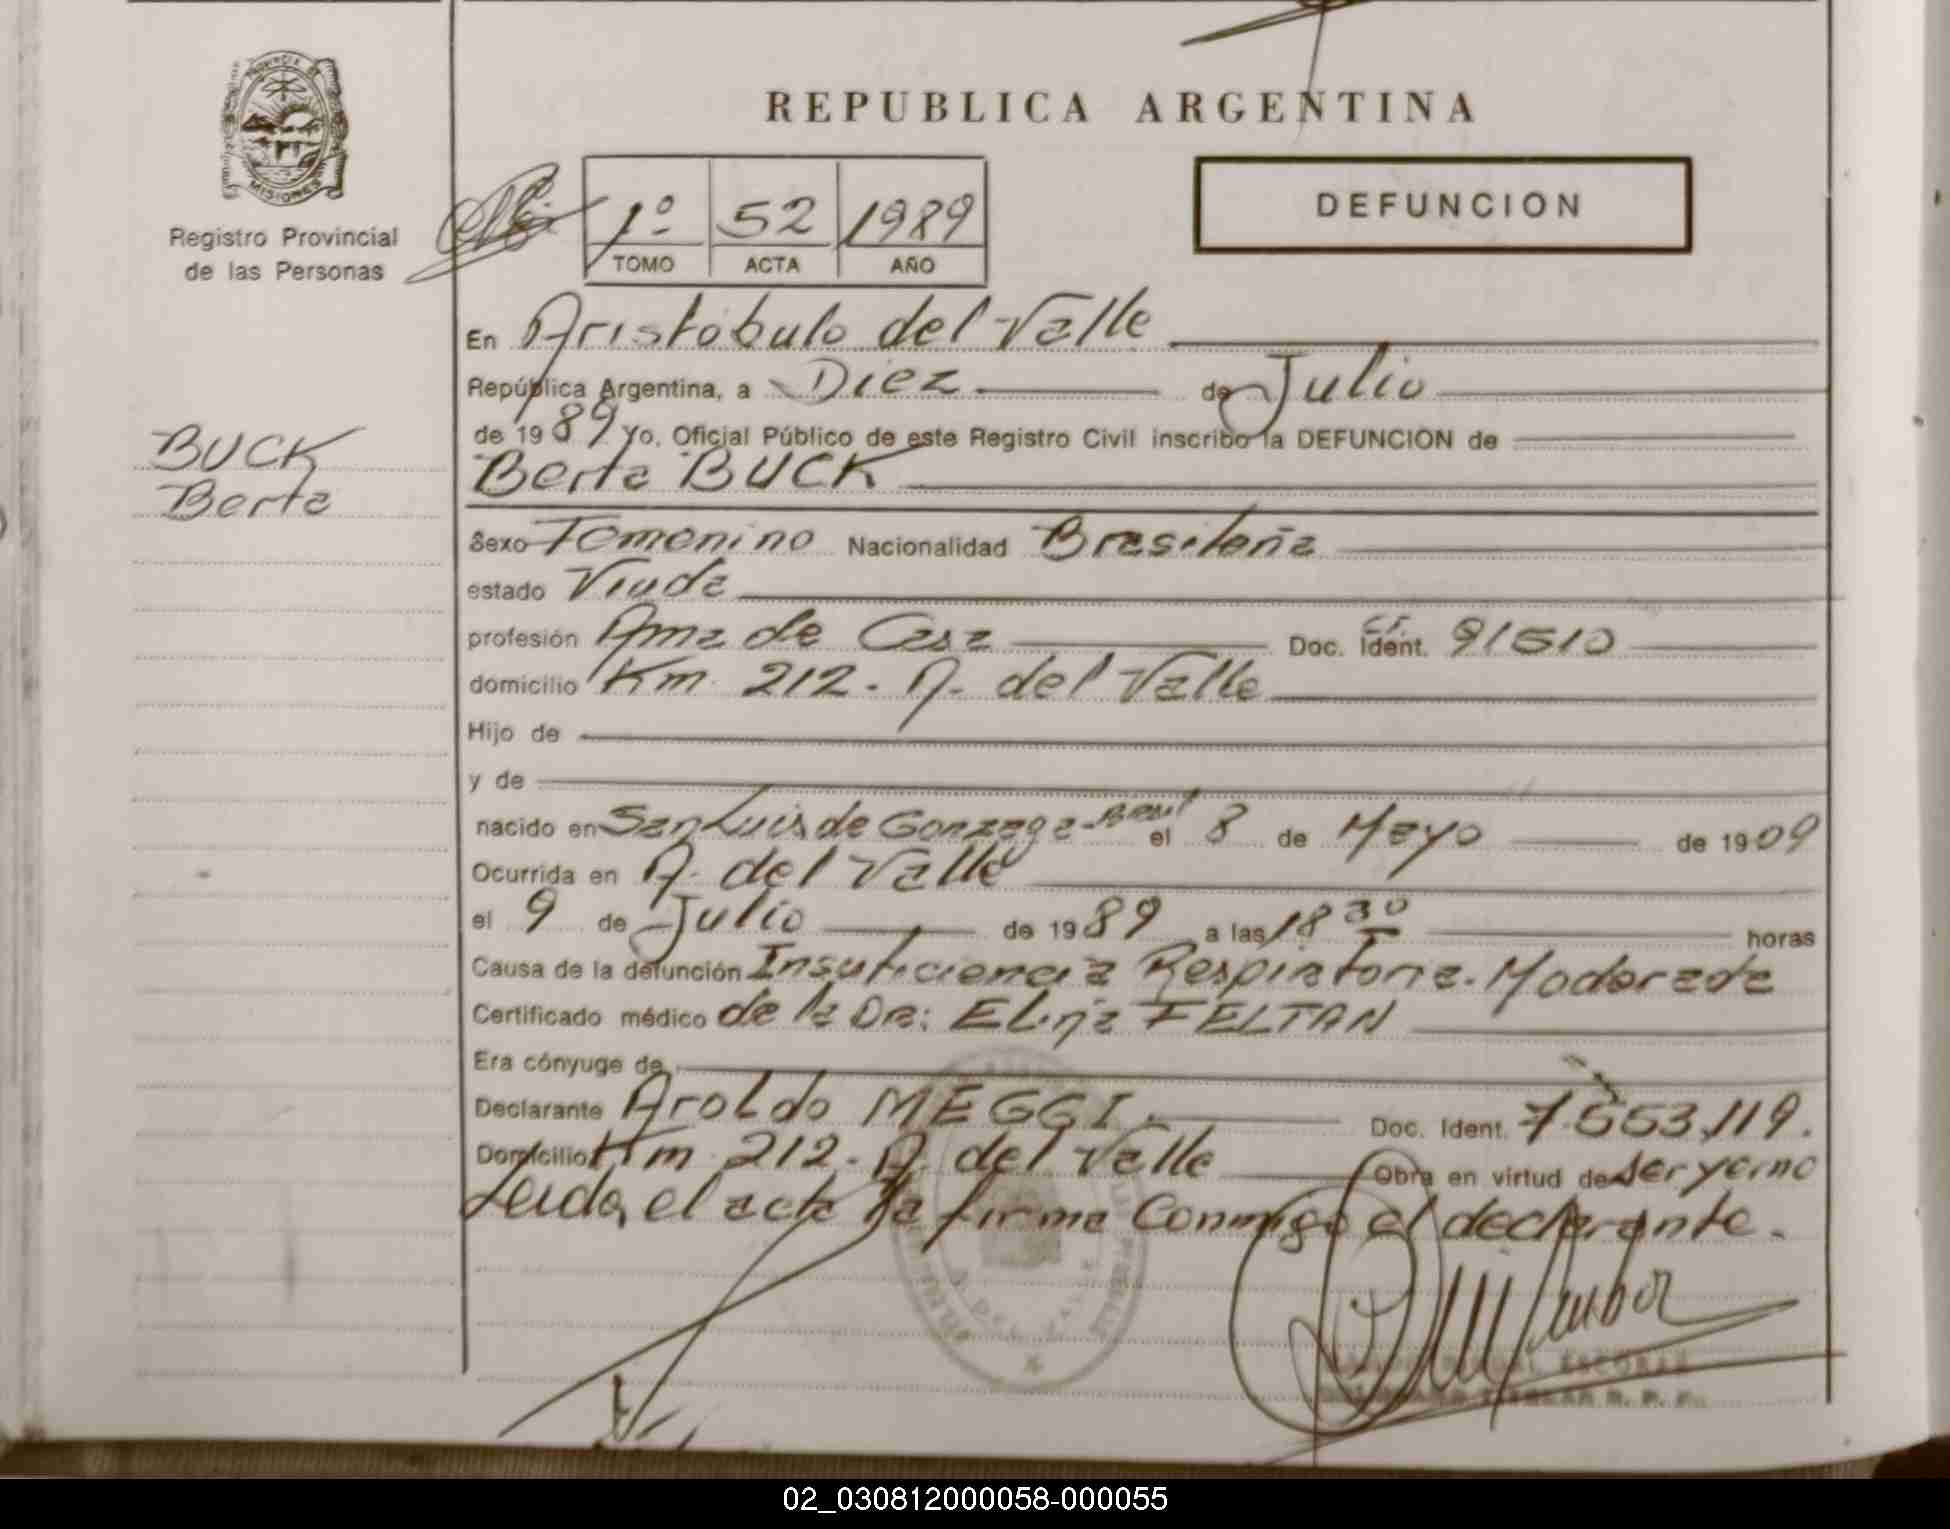 PROVINCIA DE
MISIONES
Registro Provincial
de las Personas
BUCK
Berta
REPUBLICA ARGENTINA
1º 52 1989
TOMO ACTA AÑO
DEFUNCION
En Aristóbulo del Valle
República Argentina, a Diez de Julio
de 1989 Yo, Oficial Público de este Registro Civil inscribo la DEFUNCION de
Berta BUCK
Sexo Femenino Nacionalidad Brasileña
estado Viuda
profesión Ama de Casa Doc. Ident. C.I. 91510
domicilio Km. 212 - A. del Valle
Hijo de
y de
nacido en San Luis de Gonzaga - Brasil el 8 de Mayo de 1909
Ocurrida en A. del Valle
el 9 de Julio de 1989 a las 18 30 horas
Causa de la defunción Insuficiencia Respiratoria - Moderada
Certificado médico de la Dra: FELTAN
Era cónyuge de
Declarante Aroldo MEGGI Doc. Ident. 7.553.119.
Domicilio Km. 212 - A. del Valle Obra en virtud de Ser yerno
Leida, el acta la firma Conmigo el declarante.
ESCOBAR
TITULAR R. P. P.
02_030812000058-000055